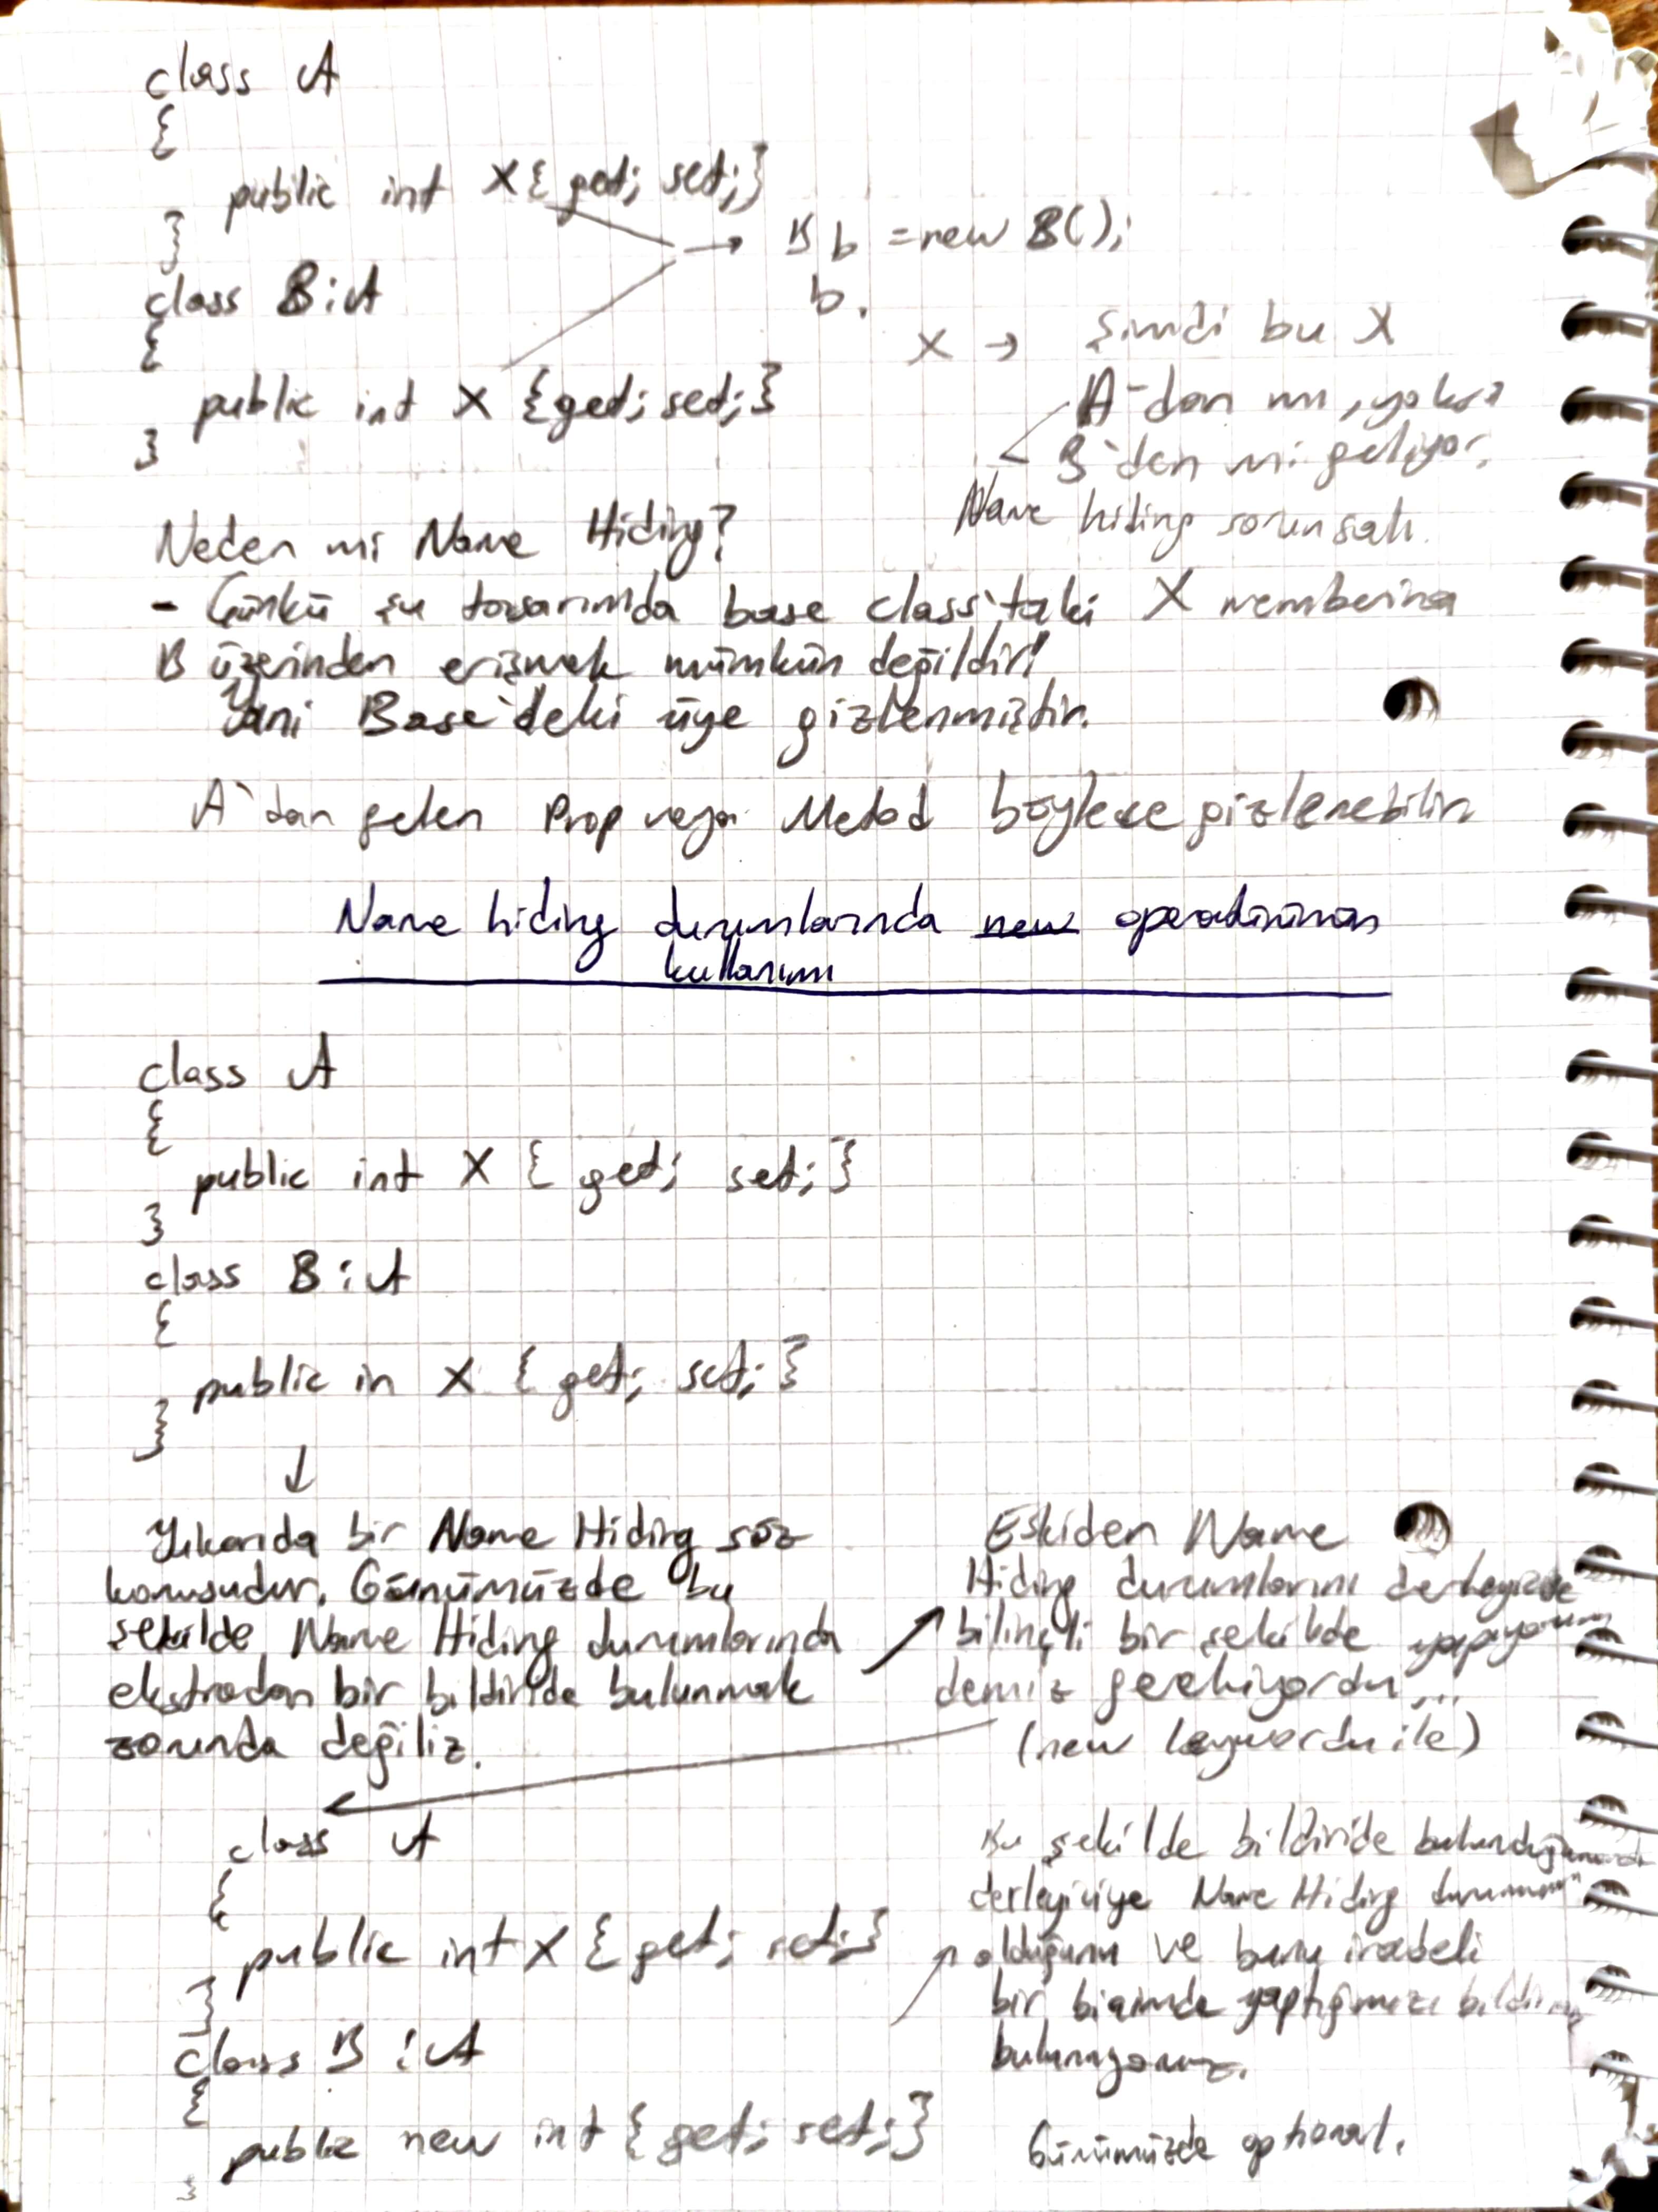 class A
{
public int X { get; set; }
}
→ B b = new B();
b.
class B : A
{
public int X { get; set; }
}
X → Şimdi bu X
A'dan mı, yoksa
B'den mi geliyor.
Name hiding sorunsalı.
Neden mi Name Hiding?
- Çünkü şu tasarımda base class'taki X memberına
B üzerinden erişmek mümkün değildir!
Yani Base'deki üye gizlenmiştir.
A'dan gelen Prop veya Metod böylece gizlenebilir
Name hiding durumlarında new operatörünün
kullanımı
class A
{
public int X { get; set; }
}
class B : A
{
public in X { get; set; }
}
↓
Yukarıda bir Name Hiding söz
konusudur. Günümüzde bu
şekilde Name Hiding durumlarında
ekstradan bir bildiride bulunmak
zorunda değiliz.
Eskiden Name
Hiding durumlarını derleyiciye
bilinçli bir şekilde yapıyorum
demiz gerekiyordu...
(new keywordu ile)
class A
{
public int X { get; set; }
}
class B : A
{
public new int { get; set; }
}
Bu şekilde bildiride bulunduğumuzda
derleyiciye Name Hiding durumunun
olduğunu ve bunu iradeli
bir biçimde yaptığımızı
bulunuyoruz.
Günümüzde optional.